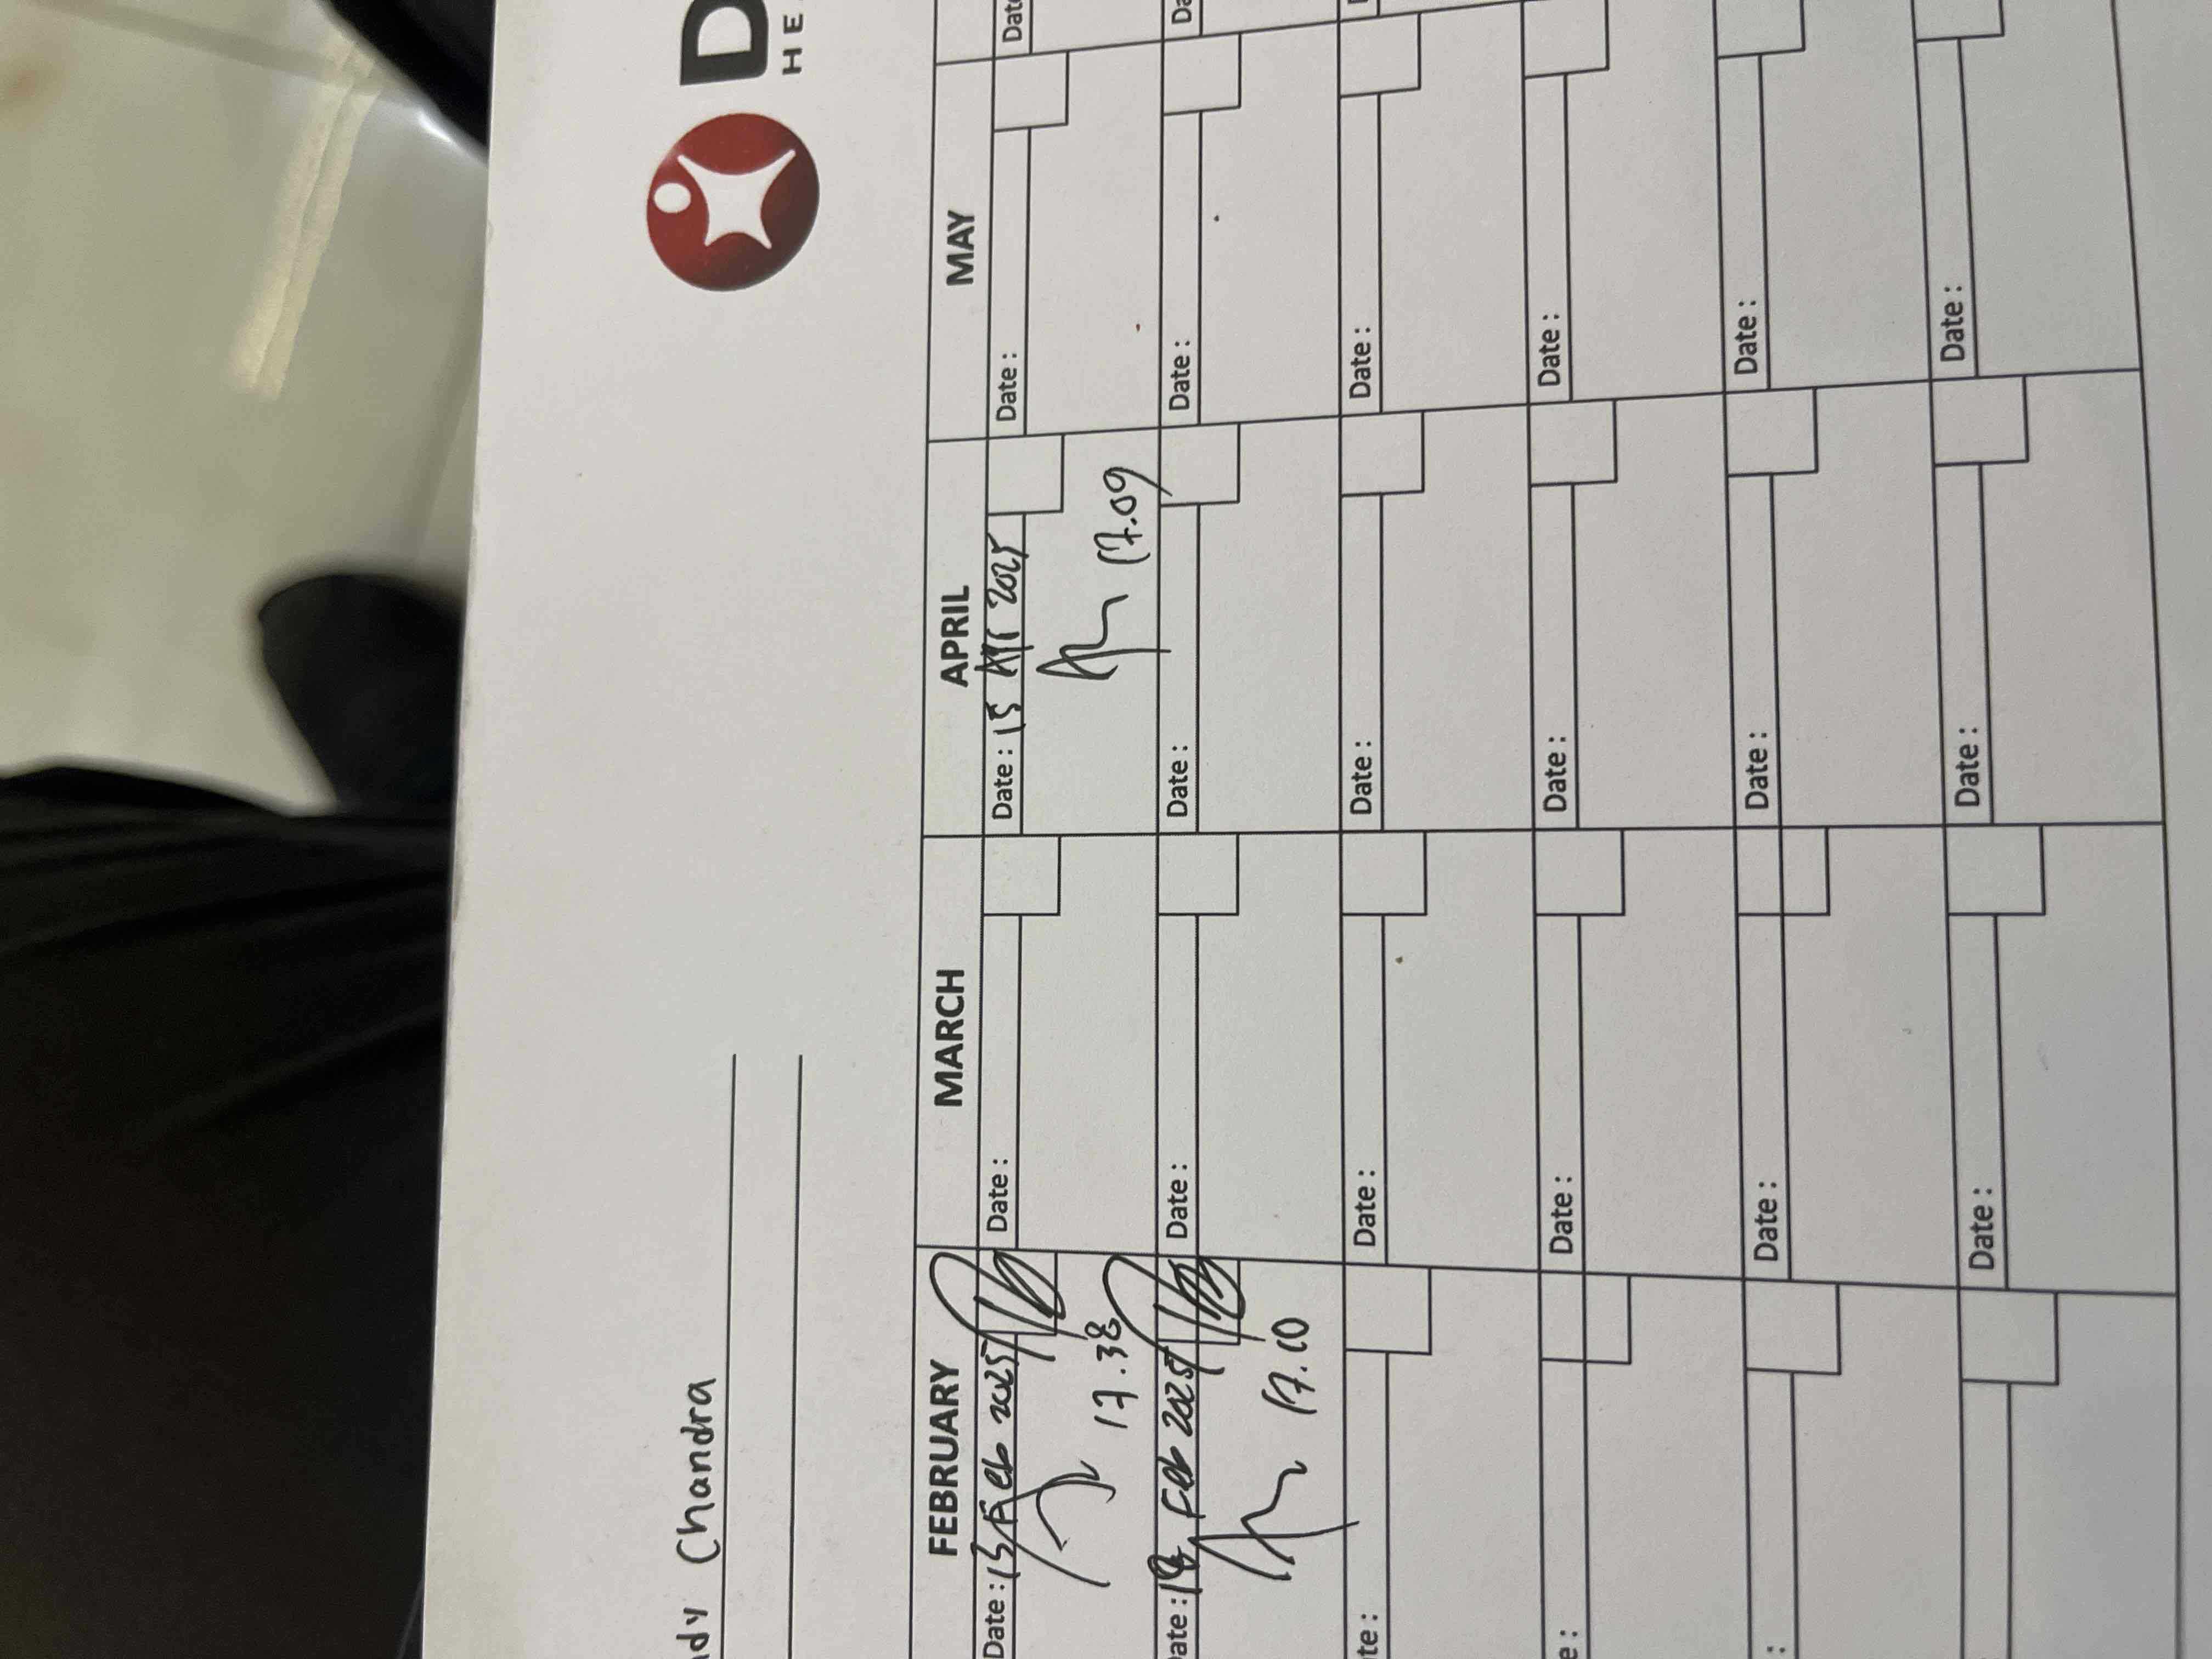 D
HE
ndy Chandra
FEBRUARY MARCH APRIL MAY
Date : 13 Feb 2025 Date : Date : 15 Apr 2025 Date : Date
17.38 17.09
ate : 18 Feb 2025 Date : Date : Date : Da
17.10
te : Date : Date : Date :
e : Date : Date : Date :
: Date : Date : Date :
Date : Date : Date :